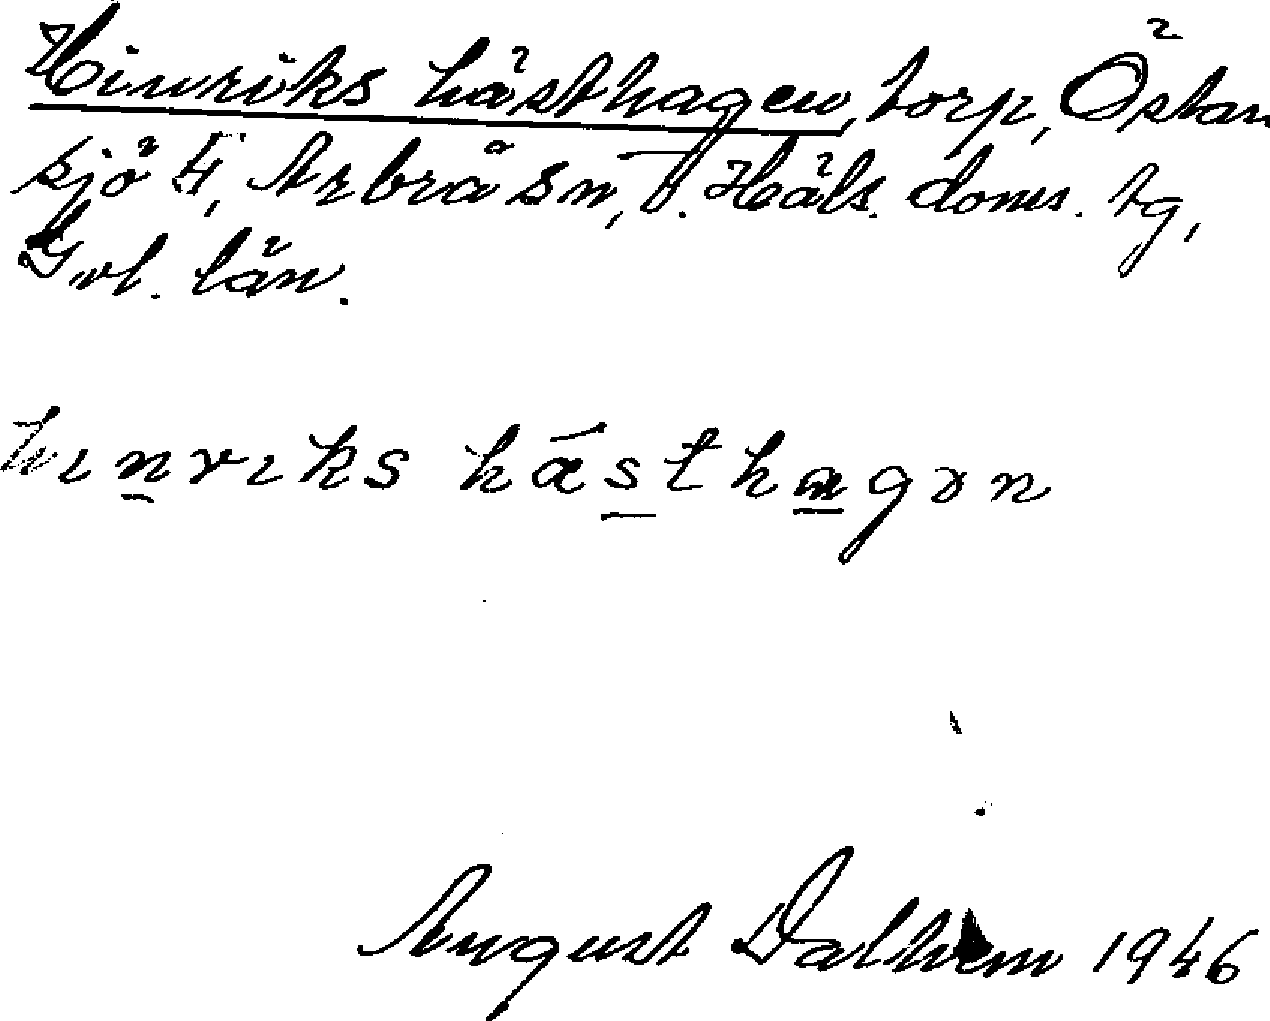 Hinriks hästhagen, torp, Östan
sjö 4, Arbrå sn, V. Häls. doms. tg,
Gvl. län.
hınrıks hǽsthagɤn
August Dalhem 1946